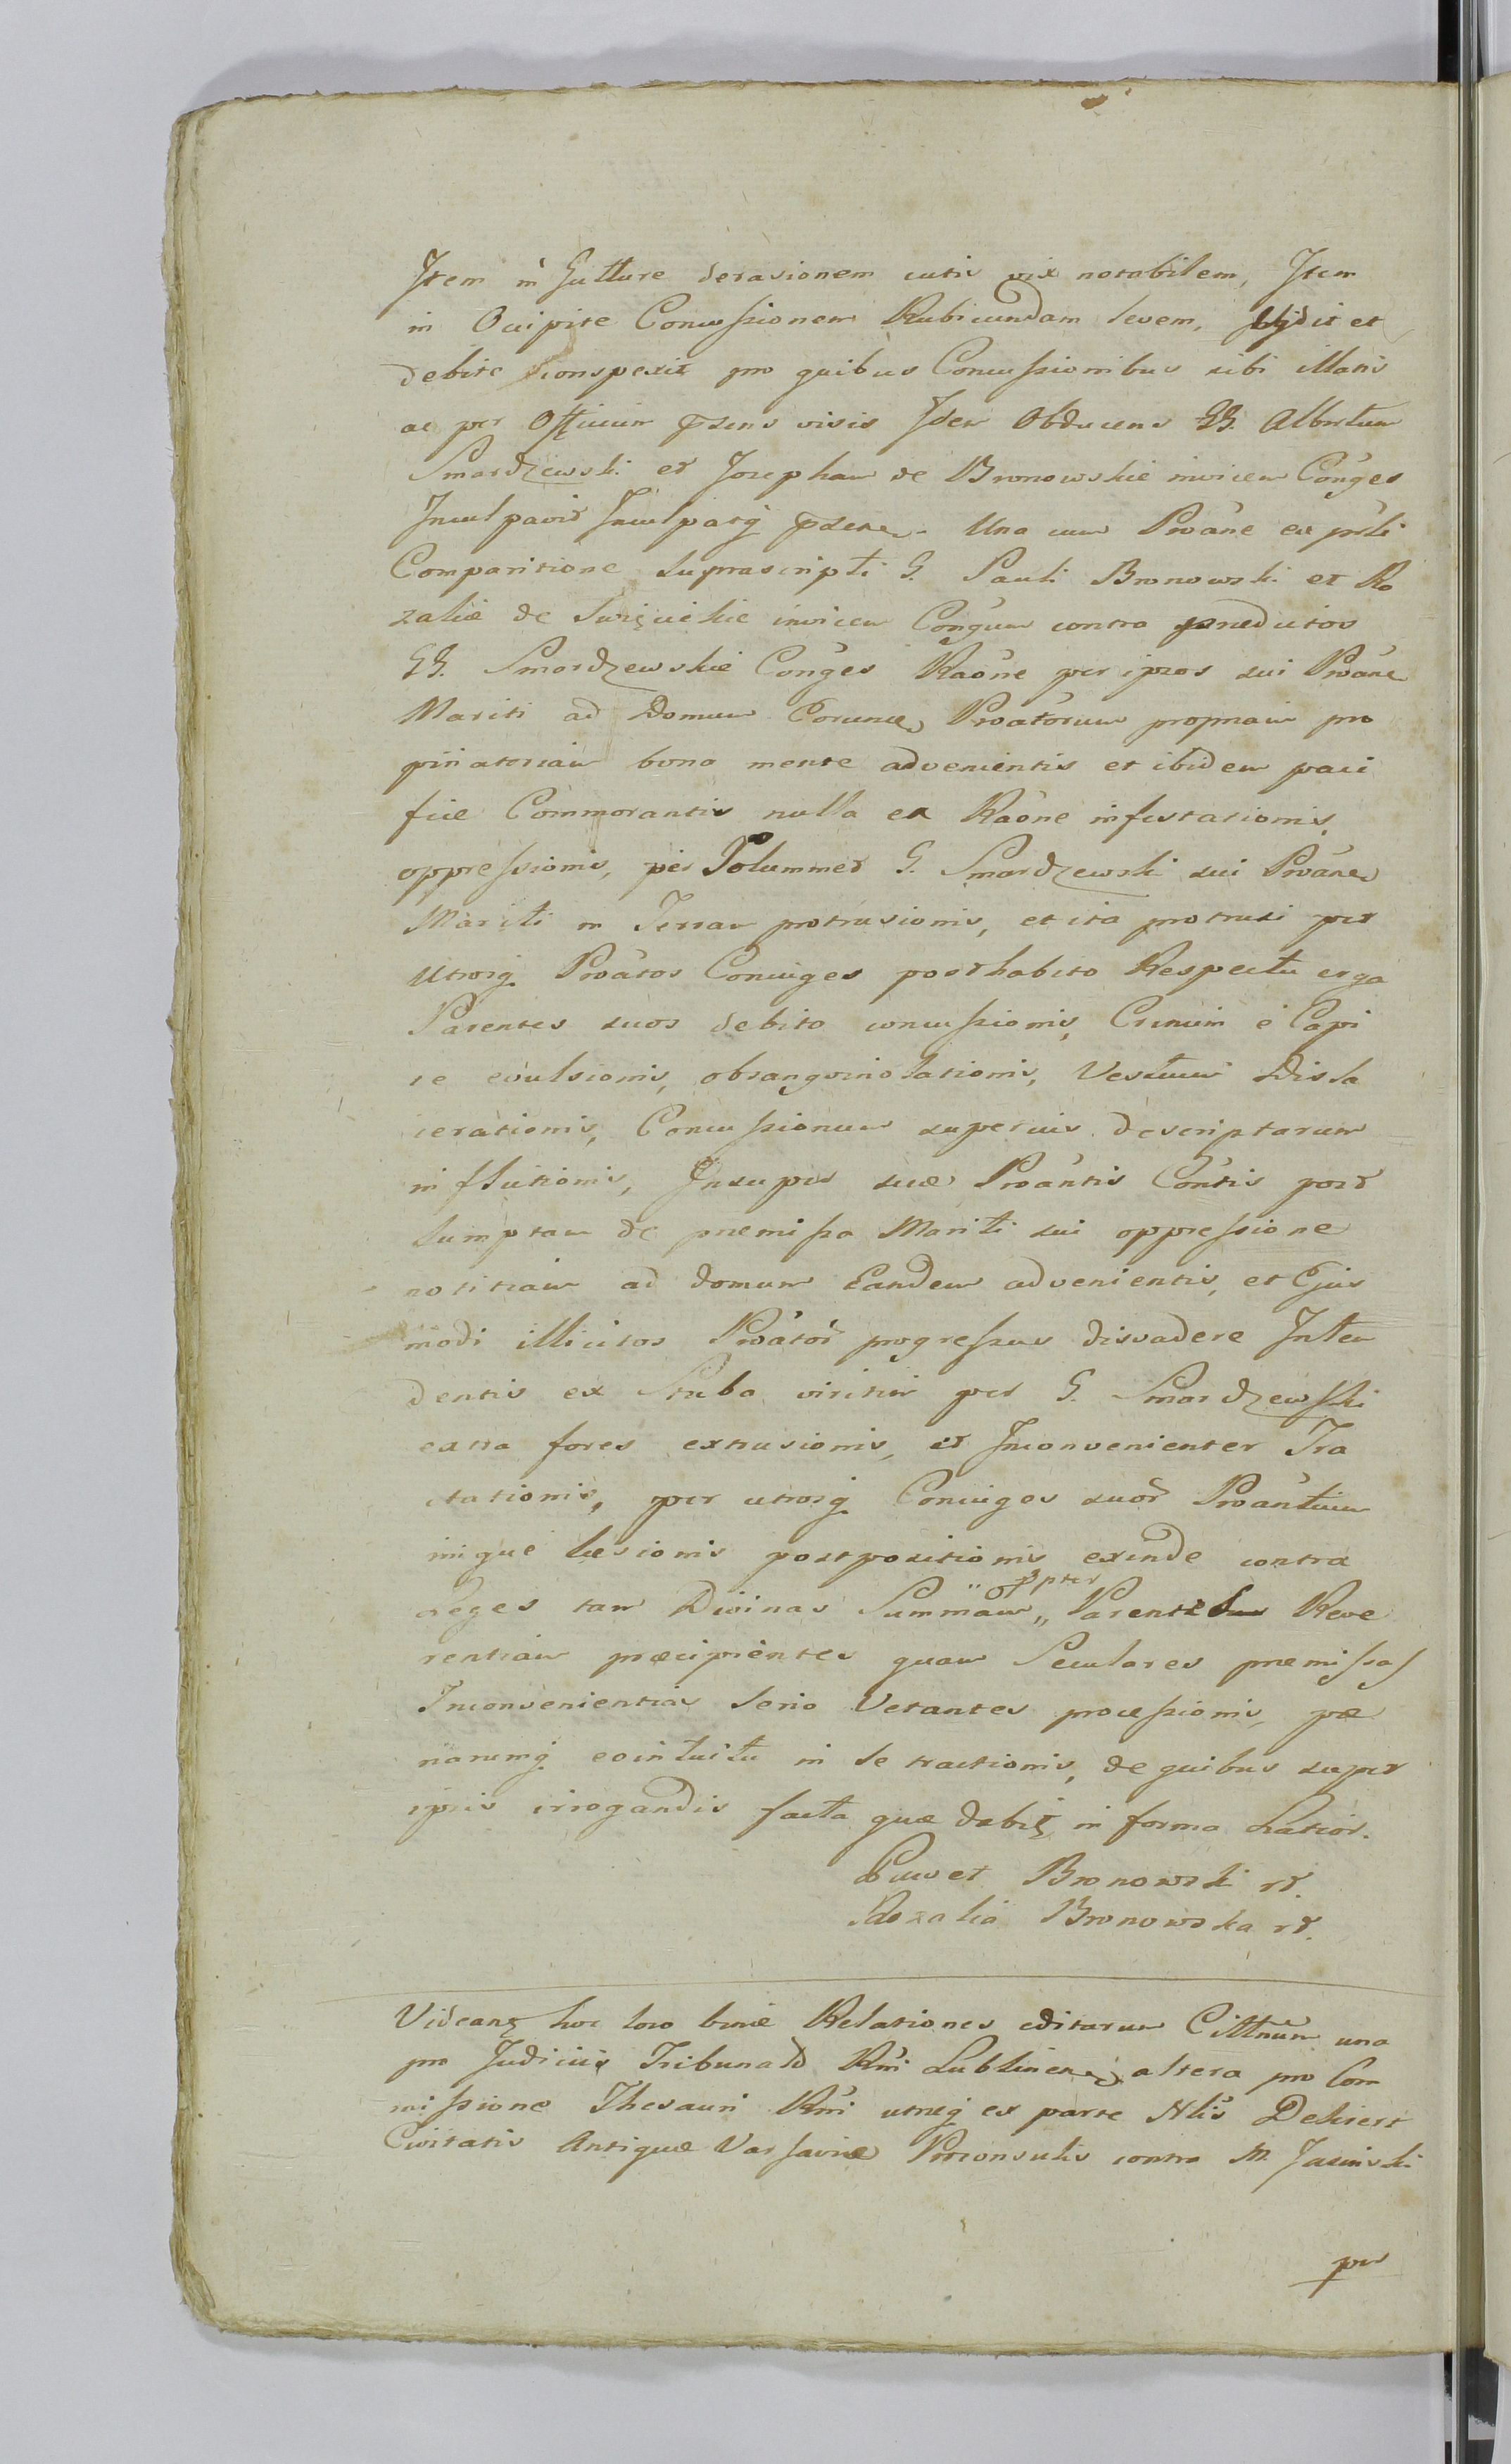 Item in Gutture derasionem cutis vix notabilem, Item
in Ocipite Concussionem Rubicundam levem, vidit et
debite conspexit pro quibus Concussionibus sibi illatis
ac per Officium pñsens visis Idem Obducens GG. Albertum
Smardzewski et Josepham de Bronowskie invicem Conǵes
Inculpavit Inculpatq́ pñsente. Una cum Proáne ex pńli
Comparitione supra scripti G. Pauli Bronowski et Ro
zaliæ de invicem Conǵum contra prædictos
GG. Smardzewskie Conǵes Raóne per ipsos sui Proáne
Mariti ad Domum Eorunde Proatórum propriam pro
pinatoriam bona mente advenientis et ibidem paci
fice Commorantis nulla ex Raóne infestationis,
oppressionis, per Solummet G. Smardzewski sui Proánes
Mariti in Terram protrusionis, et ita protrusi per
utrosq́ Proátos Coniuges posthabito Respectu erga
Parentes suos debito concussionis, Crinium è Capi
te evulsionis, obsangvinolationis, Vestium Disla
cerationis, Concussionum superius descriptarum
inflictionis, Insuper suæ Proántis Cóntis post
sumptam de præmissa Mariti sui oppressione
notitiam ad domum Eandem advenientis, et Ejus
modi illicitos Proátor̃ progressus disvadere Inten
dentis ex Stuba viritim per G. Smardzewski
extra fores extrusionis, et Inconvenienter Tra
ctationis, per utrosq́ Coniuges suor̃ Proántium
inique læsionis postpositionis exinde contra
Leges tam Divinas Summam „ Parentes Reve
rentiam præcipientes quam Seculares præmissas
Inconvenientias serio Vetantes processionis, pæ
narumq́ eointuitu in se tractionis, de quibus super
ipsis irrogandis facta quæ dabit, in forma Latior.
Pawet Bronowski rt.
Rozalia Bronowska rt.
Videant hoc loco binæ Relationes editarum Cittñum una
pro Judiciis Tribunald Rńi Lublinen, altera pro Com
missione Thesauri Rńi utraq́ ex parte Nlis Dekiert
Civitatis Antiquæ Varsaviæ Proconsulis contra M. Jasinski
per